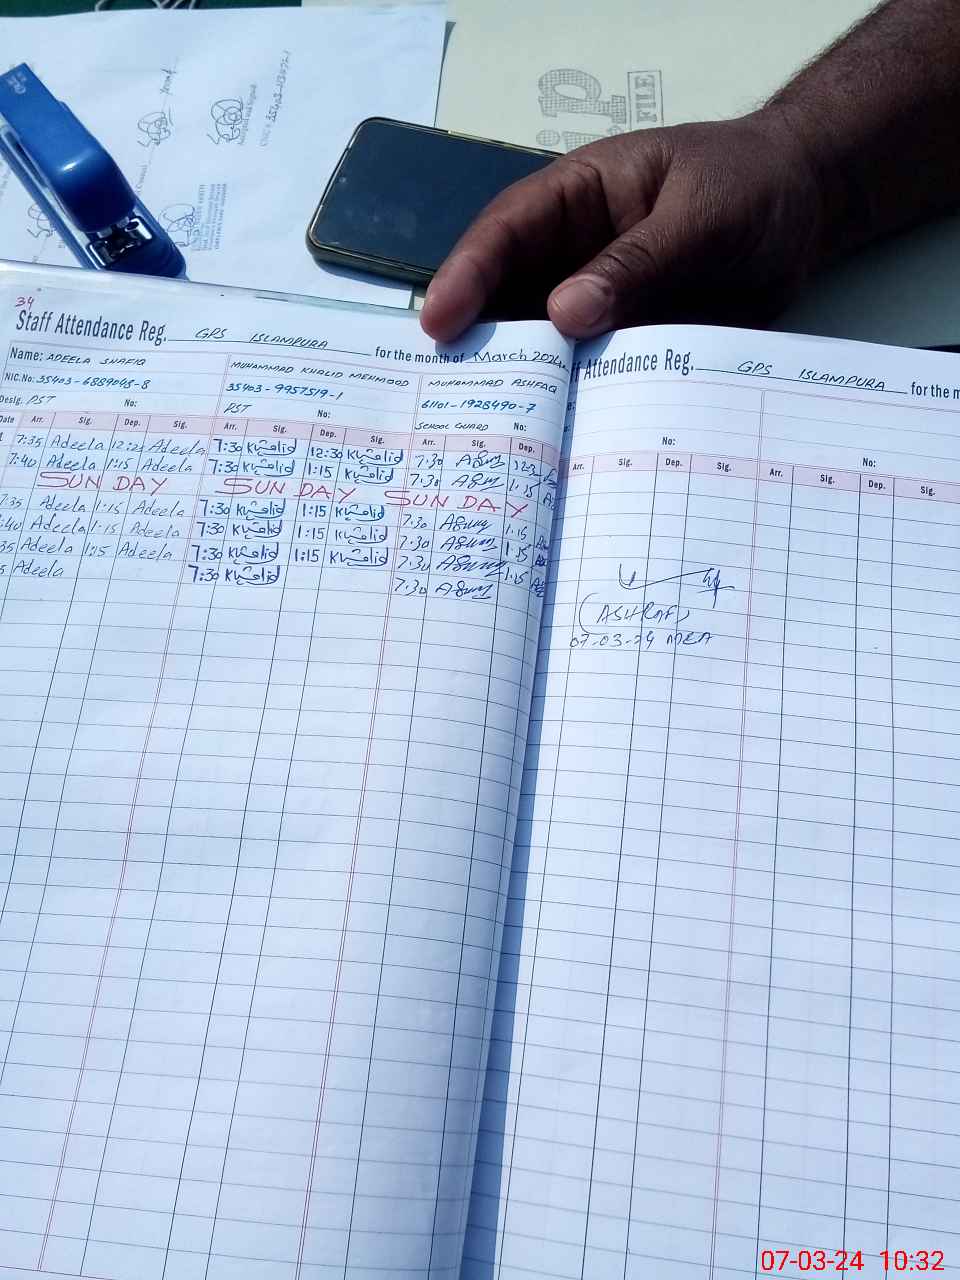 FILE
34
Staff Attendance Reg. GPS ISLAMPURA for the month of March 2024
Name: ADEELA SHAFIQ MUHAMMAD KHALID MEHMOOD MUHAMMAD ASHFAQ
NIC.No: 35403-6889045-8 35403-9957519-1 61101-1928490-7
Desig. PST No: PST No: SCHOOL GUARD No:
Date Arr. Sig. Dep. Sig. Arr. Sig. Dep. Sig. Arr. Sig. Dep.
1 7:35 Adeela Adeela 7:30 Khalid 12:30 Khalid 7.30
7:40 Adeela 1:15 Adeela 7:30 Khalid 1:15 Khalid 7.30 1.15
SUN DAY SUN DAY SUN DAY
7:35 Adeela 1:15 Adeela 7:30 Khalid 1:15 Khalid 7.30 1.15
:40 Adeela 1:15 Adeela 7:30 Khalid 1:15 Khalid 7.30 1.15
35 Adeela 1:15 Adeela 7:30 Khalid 1:15 Khalid 7.30 1.15
5 Adeela 7:30 Khalid 7.30
ff Attendance Reg. GPS ISLAMPURA for the m
No: No:
Arr. Sig. Dep. Sig. Arr. Sig. Dep. Sig.
(ASHRAF)
07-03-24 MEA
07-03-24 10:32